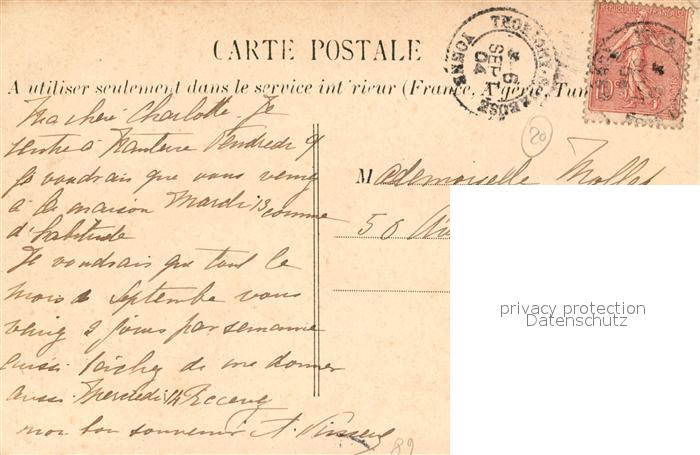 CARTE POSTALE
A utiliser seulement dans le service int'rieur (France, Algérie, Tun
Ma chère Charlotte. Je
rentre à Nanterre Vendredi 9
Je voudrais que vous veniez
à la maison Mardi 13 comme
d'habitude
Je voudrais que tout le
mois de Septembre vous
veniez 2 jours par semaine
aussi tâchez de me donner
aussi Mercredi 14 Recevez
mon bon souvenir A.
Mademoiselle
50
20
89
YONNE
5
SEPT
04
REPUBLIQUE FRANÇAISE
10
privacy protection
Datenschutz